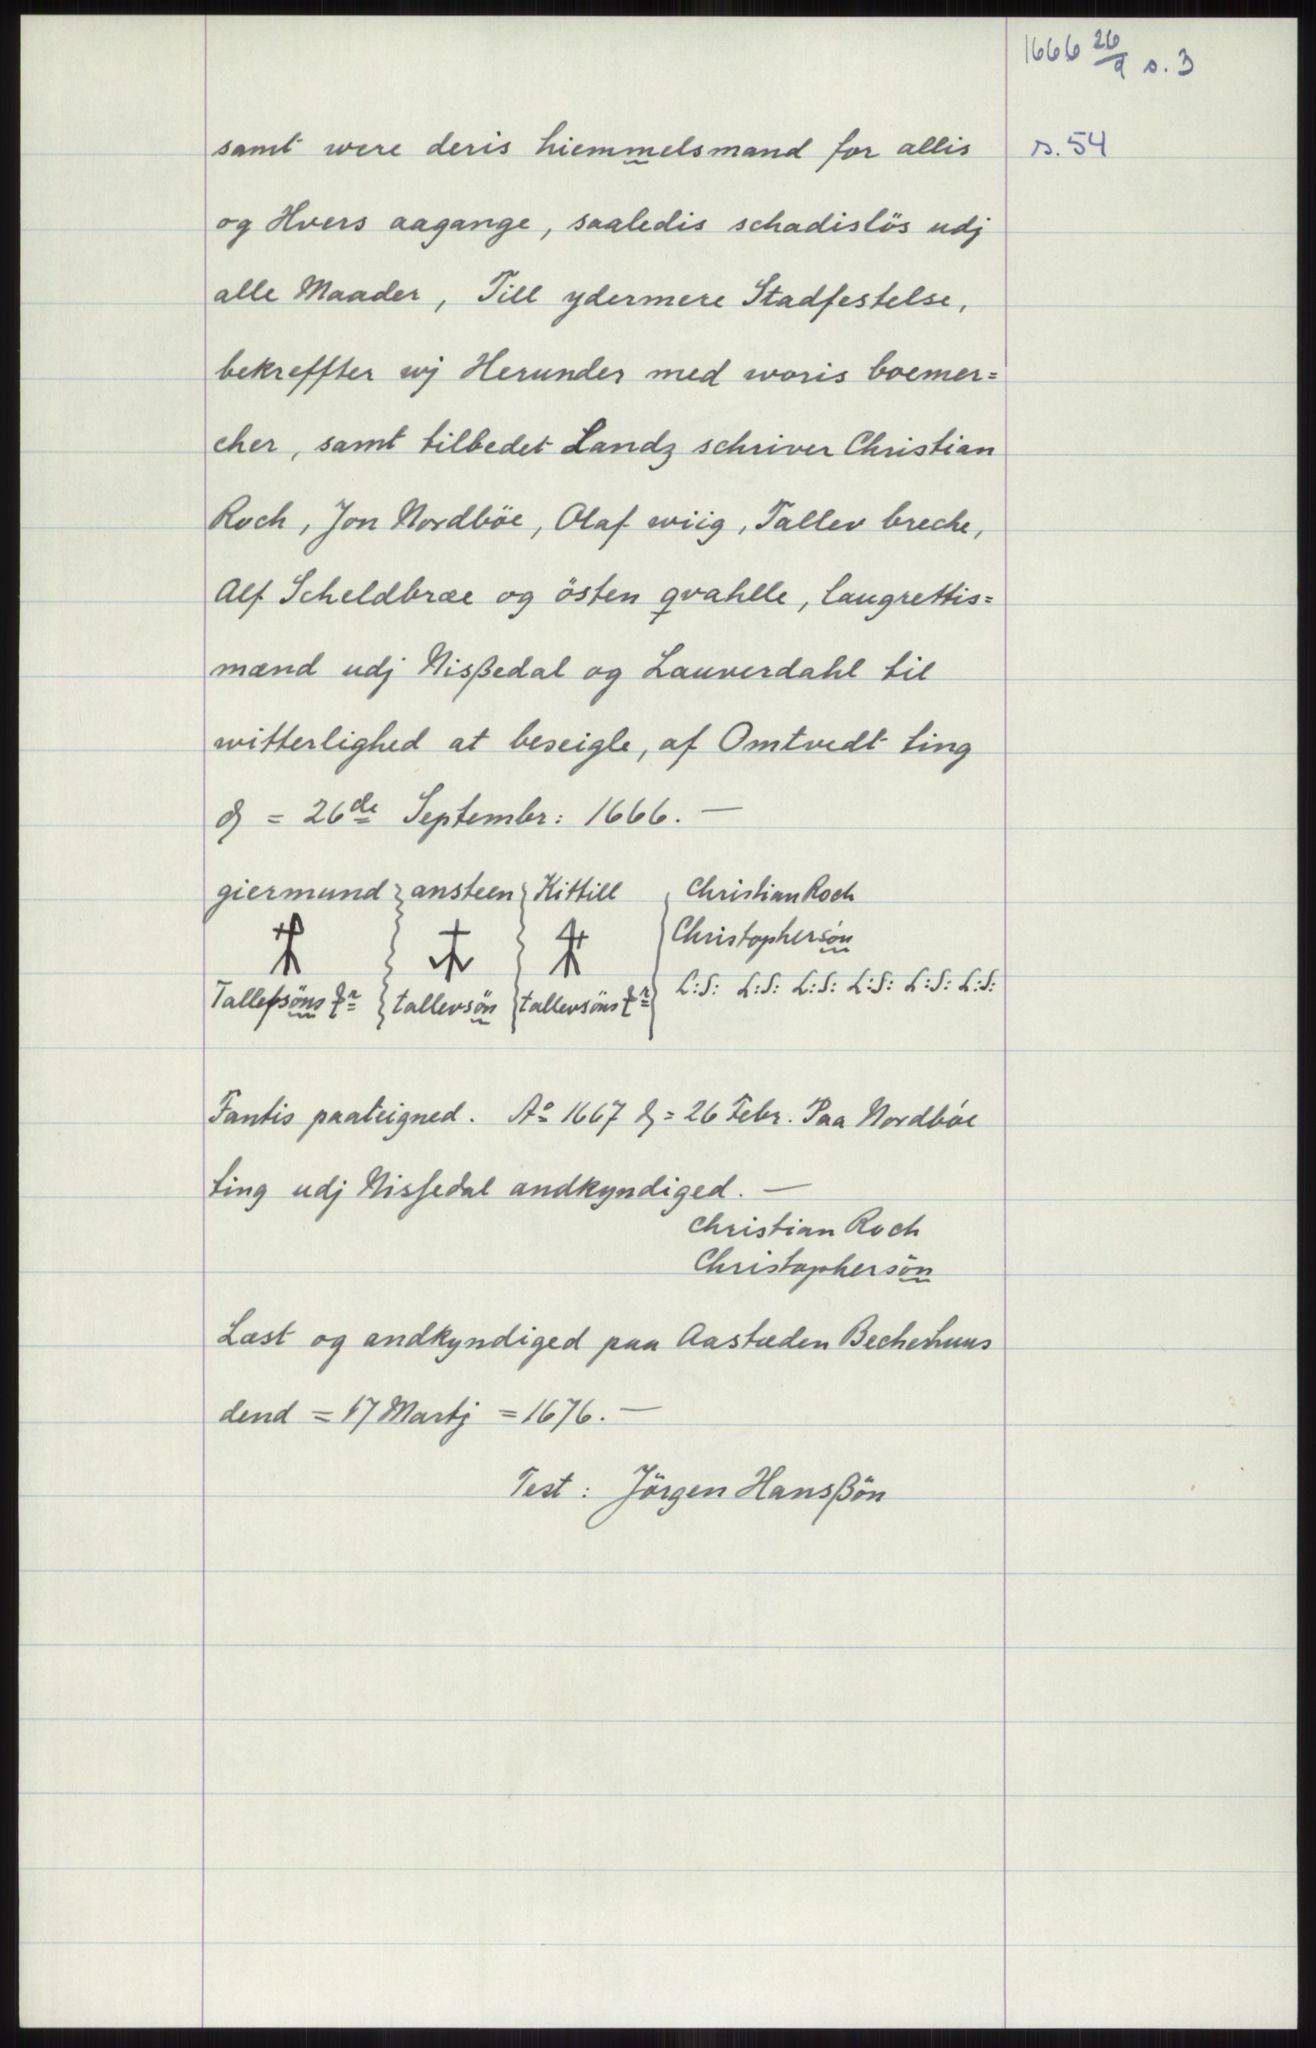 1666 26/9 s. 3
samt were deris hiemmelsmand for allis
s. 54
og Hvers aagange, saaledis schadislös udj
alle Maader, Till ydermere Stadfestelse,
bekreffter wj Herunder med woris boemer=
cher, samt tilbedet Landz schriver Christian
Roch, Jon Nordböe, Olaf wiig, Tallev breche,
Alf Scheldbræ og östen qvahlle, laugrettis=
mænd udj Nißedal og Lauverdahl til
witterlighed at beseigle, af Omtvedt ting
= 26de Septembr: 1666. —
giermund ansteen Kittill Christian Roch
Christophersön
L:S: L:S: L:S: L:S: L:S: L:S:
Tallefsöns tallevsön tallevsöns
Fantis paateigned. Ao 1667 = 26 Febr. Paa Nordböe
ting udj Nissedal andkyndiged. —
Christian Roch
Christophersön
Læst og andkyndiged paa Aastæden Becherhuus
dend = 17 Martj = 1676. —
Test: Jörgen Hansßön